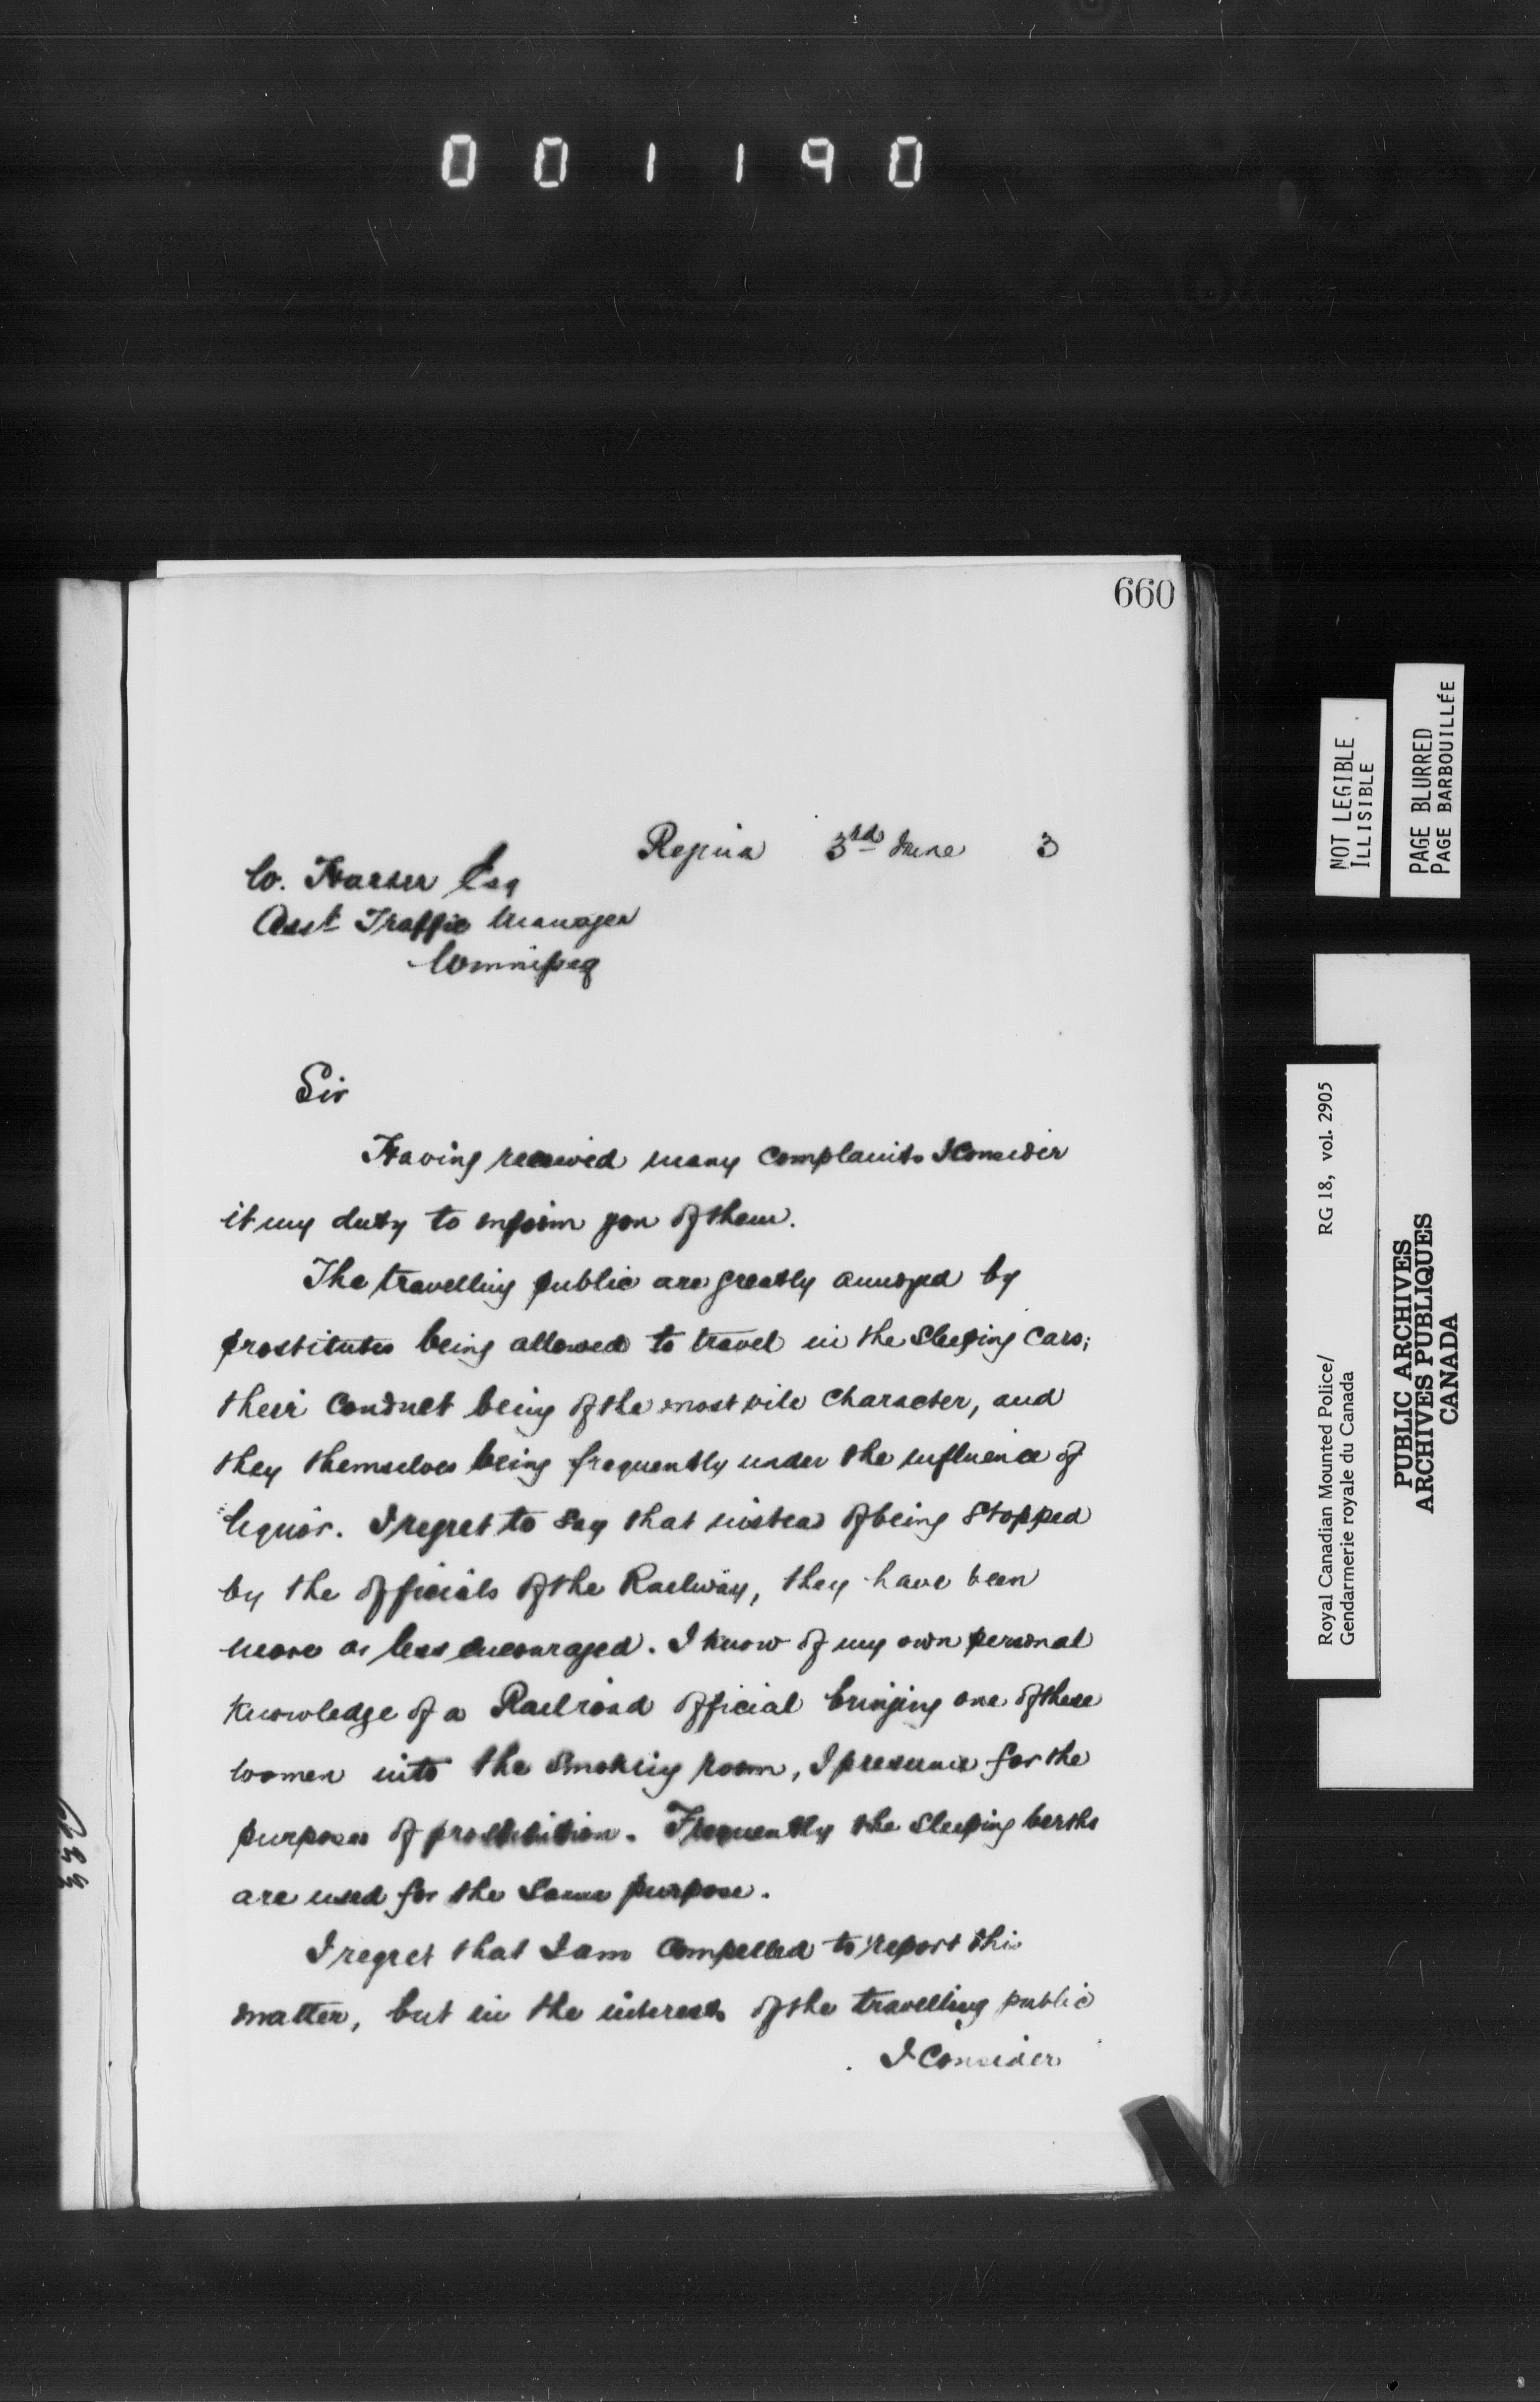 001190
660
Regina 3rd June 3
W. Harder Esq
Asst Traffic Manager
Winnipeg
Sir
Having received many complaints I Consider
it my duty to inform you of them.
The travelling public are greatly annoyed by
prostitutes being allowed to travel in the Sleeping Cars;
their Conduct being of the most vile Character, and
they themselves being frequently under the influence of
liquor. I regret to Say that instead of being Stopped
by the officials of the Railway, they have been
more or less encouraged. I know of my own personal
Knowledge of a Railroad official bringing one of these
women into the Smoking room, I presume for the
purposes of prostitution. Frequently the Sleeping berths
are used for the Same purpose.
I regret that I am Compelled to report this
matter, but in the interests of the travelling public
I Consider
NOT LEGIBLE
ILLISIBLE
PAGE BLURRED
PAGE BARBOUILLÉE
Royal Canadian Mounted Police/ RG 18, vol. 2905
Gendarmerie royale du Canada
PUBLIC ARCHIVES
ARCHIVES PUBLIQUES
CANADA